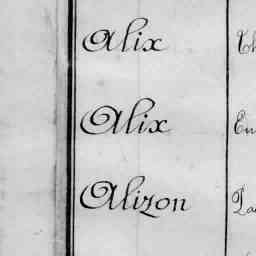 Alix
Alix
Alizon